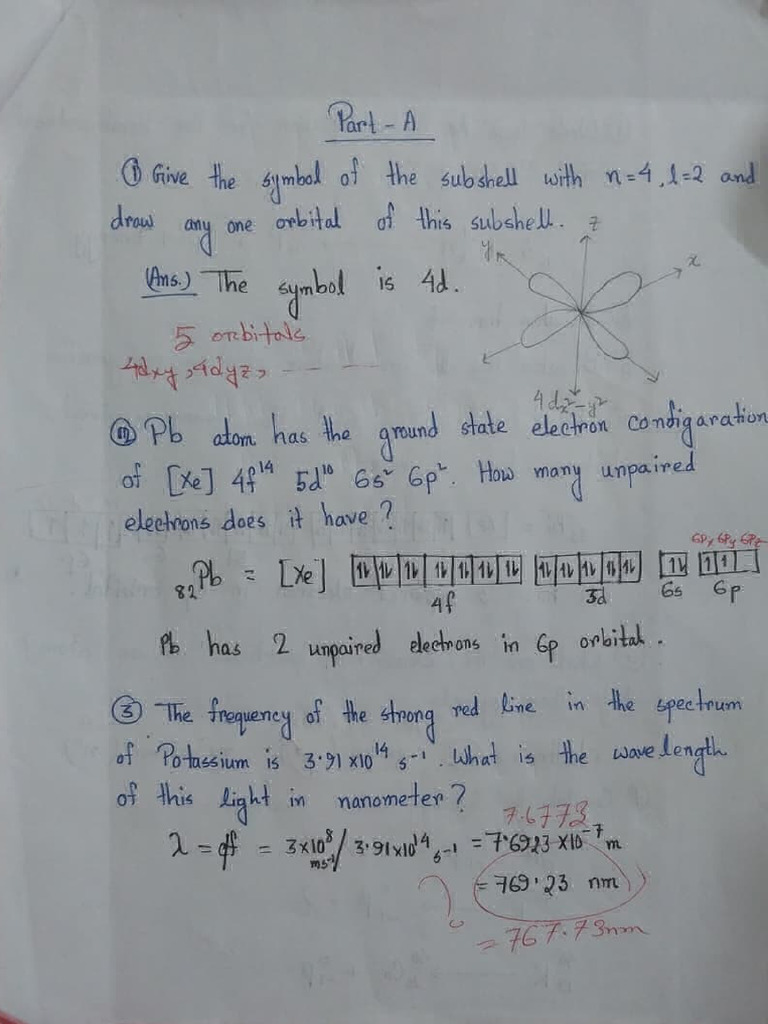 Part - A
① Give the symbol of the subshell with n=4, l=2 and
draw any one orbital of this subshell.
z
y
x
(Ans.) The symbol is 4d.
5 orbitals
4dxy, 4dyz, — — —
4dx²-y²
② Pb atom has the ground state electron configaration
of [Xe] 4f¹⁴ 5d¹⁰ 6s² 6p². How many unpaired
electrons does it have?
6Px 6Py 6Pz
₈₂Pb = [Xe] ⥮ ⥮ ⥮ ⥮ ⥮ ⥮ ⥮ ⥮ ⥮ ⥮ ⥮ ⥮ ⥮ 1 1
4f 3d 6s 6p
Pb has 2 unpaired electrons in 6p orbital.
③ The frequency of the strong red line in the spectrum
of Potassium is 3.91 x10¹⁴ s⁻¹. What is the wavelength
of this light in nanometer?
7.6773
λ = c/f = 3×10⁸ ms⁻¹/ 3.91×10¹⁴ s⁻¹ = 7.6923 ×10⁻⁷ m
= 769.23 nm
?
= 767.73nm